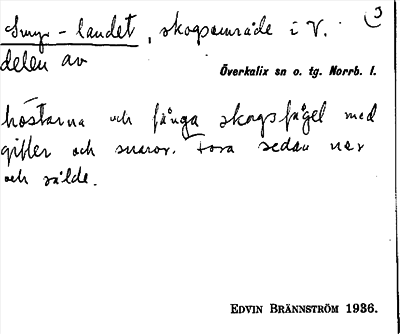 Smyr-landet, skogsområde i V. 3
delen av
Överkalix sn o. tg. Norrb. l.
höstarna och fånga skogsfågel med
giller och snaror. Fora sedan ner
och sålde.
EDVIN BRÄNNSTRÖM 1936.